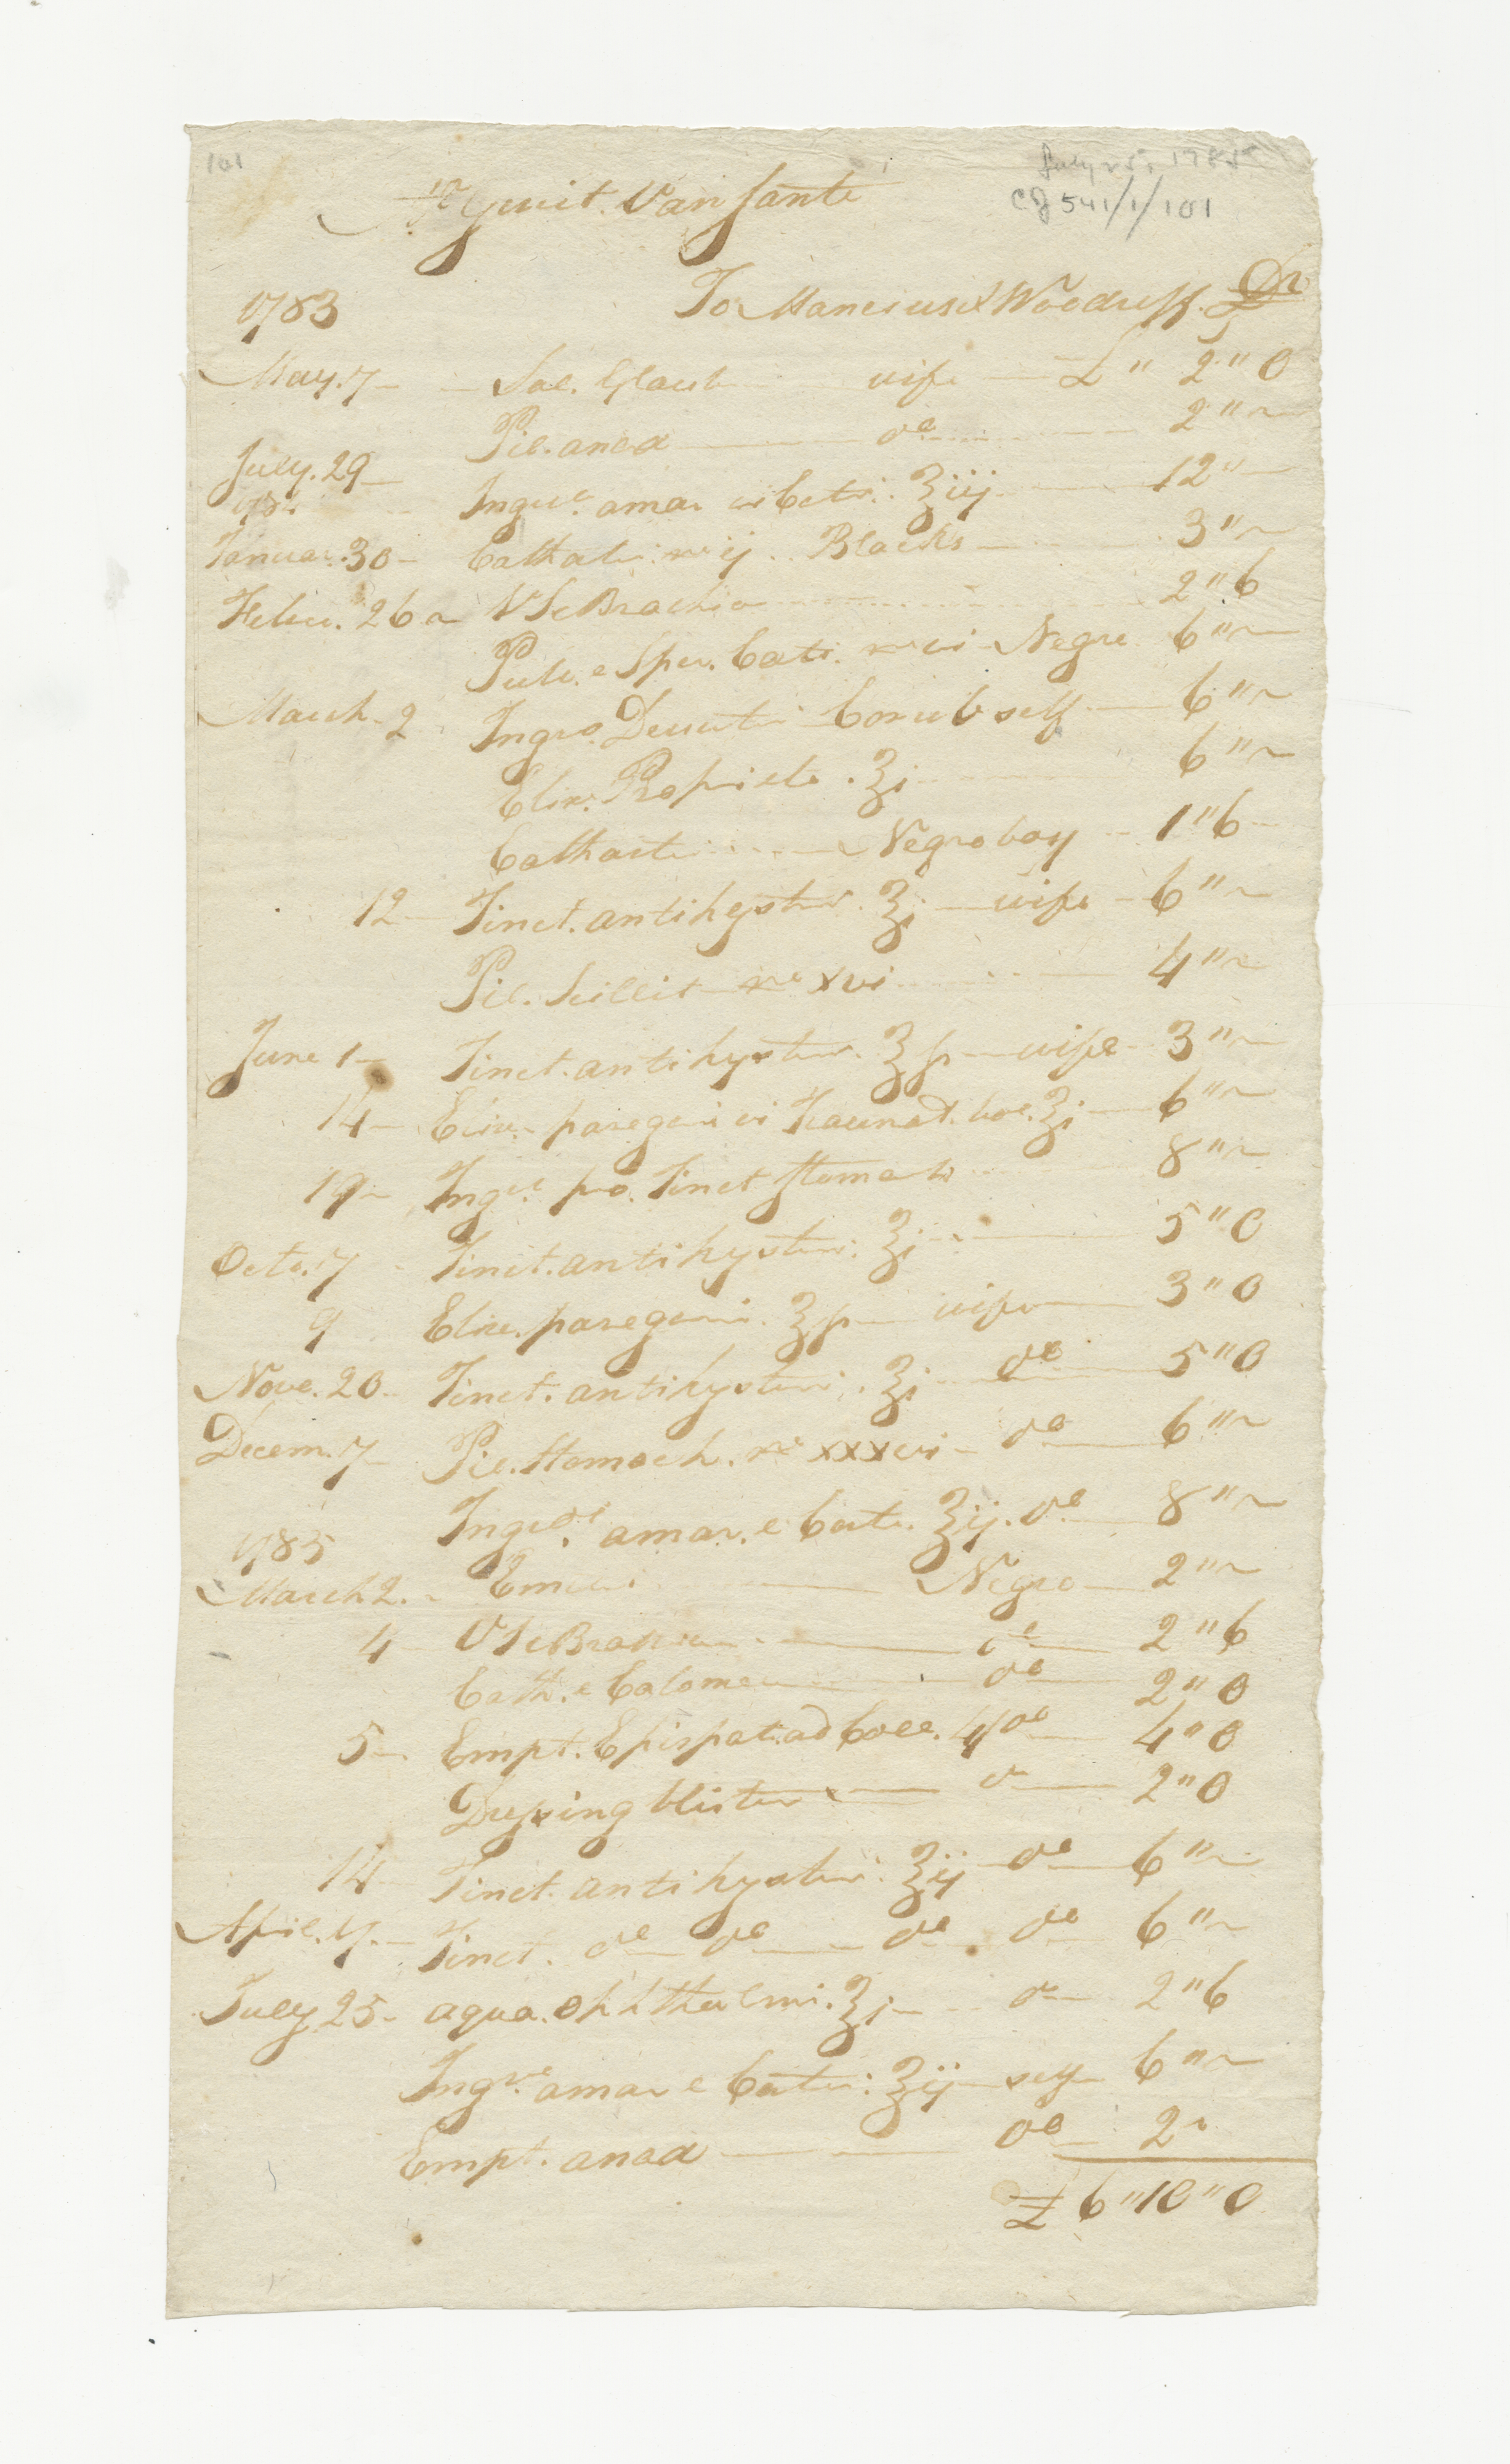 101
July 25, 1785
CJ 541/1/101
Mr Gerrit Van Sante
1783 To Mancius & Woodruff Dr
May. 7 Sal. Glaub wife £ " 2 " 0
Pil. anod do 2 " ~
July. 29 Ingred. amar e Cort. ℥iij 12 "
84
Januar. 30 Cathart. no ij Blacks 3 " ~
Febru. 26 VS e Brachio 2 " 6
Pulv. e Sper. Ceti. no vi Negro 6 " ~
March 2 Ingr. Decoct Cornu C self 6 " ~
Elix. Propriet. ℥i 6 " ~
Cathart Negro boy 1 " 6
12 Tinct. antihyster. ℥i wife 6 " ~
Pil. Scillit no xvi 4 " ~
June 1 Tinct. antihyster. ℥ß wife 3 " ~
14 Elix. paregori vol. ℥i 6 " ~
19 Ingr. pro. Tinct Stomach 8 " ~
Octo. 7 Tinct. antihyster. ℥i 5 " 0
9 Elix. paregori. ℥ß wife 3 " 0
Nove. 20 Tinct. antihyster. ℥i do 5 " 0
Decem. 7 Pil. Stomach. no xxxvi do 6 " ~
Ingred. amar. e Cort. ℥ij. do 8 " ~
1785
March 2. Emetic Negro 2 " ~
4 VS e Brachio do 2 " 6
Cath. e Calomel do 2 " 0
5 Empt. Epispat. ad Coll. 4 do 4 " 0
Dressing blister do 2 " 0
14 Tinct. antihyster. ℥ij do 6 " ~
April. 7. Tinct. do do do do 6 " ~
July 25 aqua. Ophthalmi. ℥i do 2 " 6
Ingr. amar e Corti: ℥ij self 6 " ~
Empt. anod do 2 "
£ 6 " 10 " 0